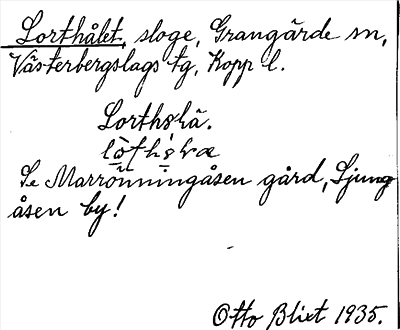 Lorthålet, sloge, Grangärde sn,
Västerbergslags tg, Kopp l.
Lorthskä.
Se Marrönningåsen gård, Ljung
åsen by!
Otto Blixt 1935.